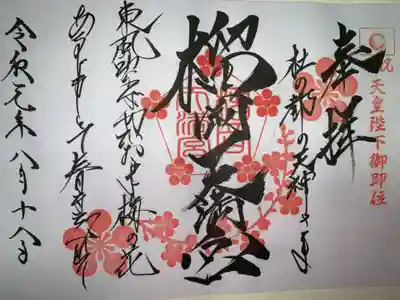 祝 天皇陛下御即位
奉拝
杜の都の天神さま
榴岡天満宮
東風吹かば匂ひおこせよ梅の花
あるじなしとて春な忘れそ
令和元年八月十八日